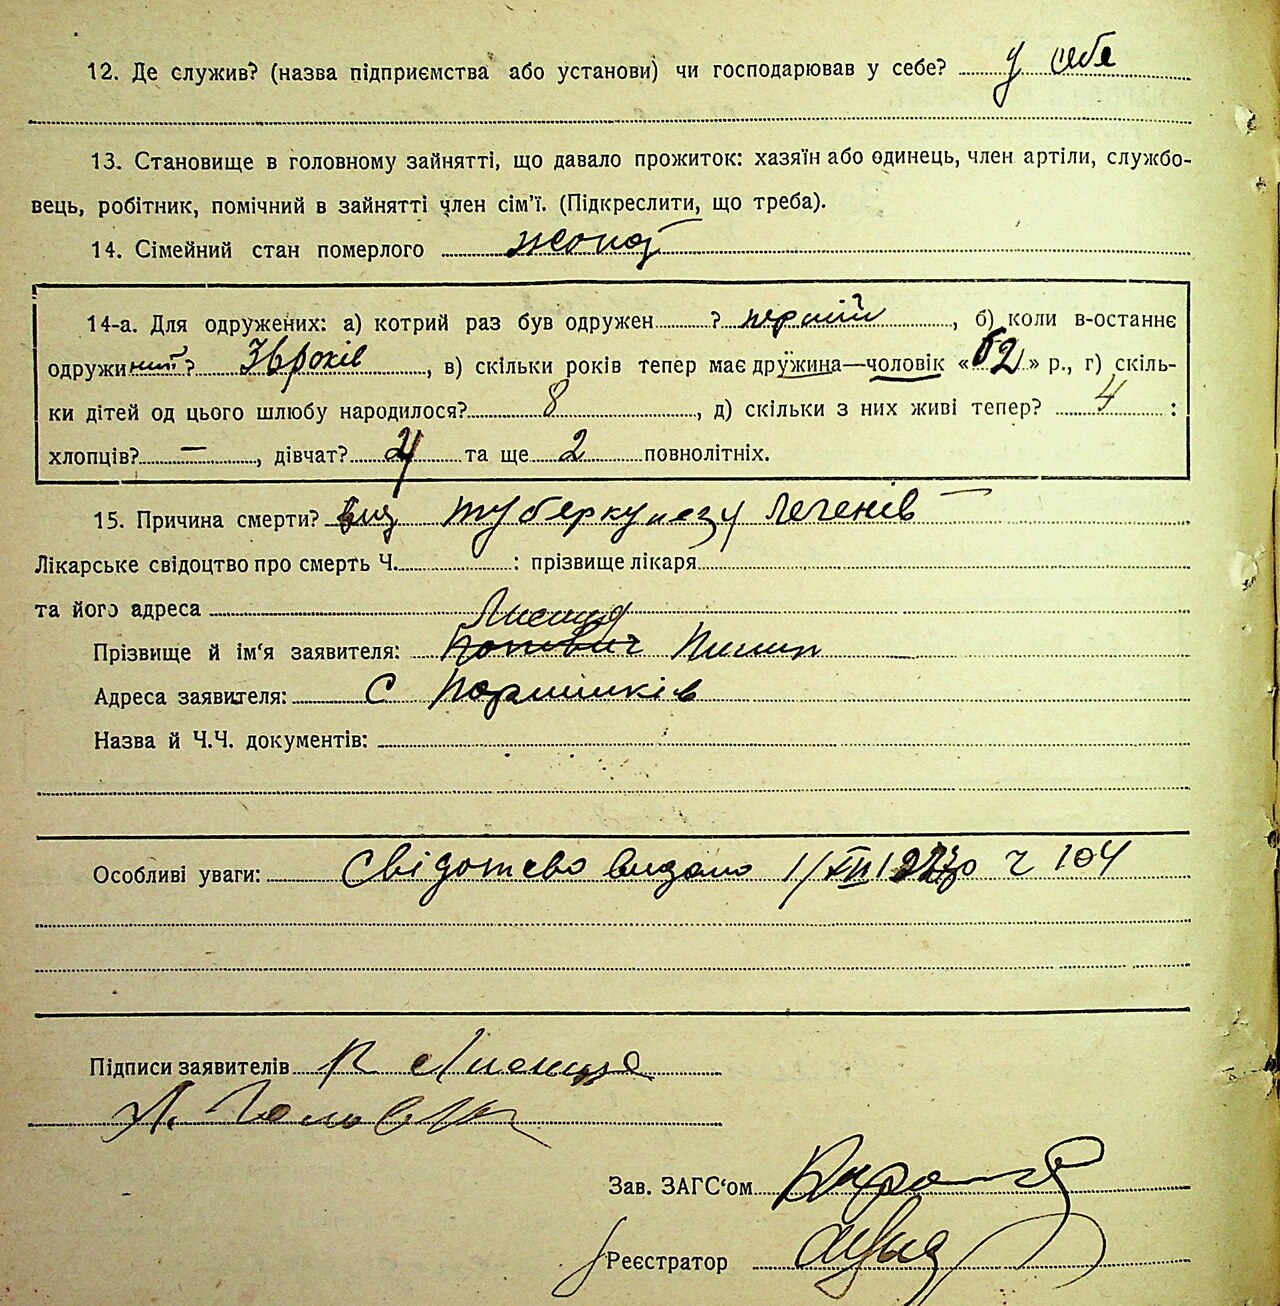 12. Де служив? (назва підприємства або установи) чи господарював у себе? у себе
13. Становище в головному зайнятті, що давало прожиток: хазяїн або одинець, член артіли, службо-
вець, робітник, помічний в зайнятті член сім'ї. (Підкреслити, що треба).
14. Сімейний стан померлого
14-а. Для одружених: а) котрий раз був одружен ? перший, б) коли в-останнє
одружений? 36 років, в) скільки років тепер має дружина—чоловік «62» р., г) скіль-
ки дітей од цього шлюбу народилося? 8, д) скільки з них живі тепер? 4 :
хлопців? —, дівчат? 2 та ще 2 повнолітніх.
15. Причина смерти? від туберкульозу легенів
Лікарське свідоцтво про смерть Ч. : прізвище лікаря
та його адреса
Лисиця
Прізвище й ім'я заявителя: Попович Пилип
Адреса заявителя: С
Назва й Ч.Ч. документів:
Особливі уваги: Свідоцтво видано 1/XII 192 р ч 104
Підписи заявителів П Лисиця
Зав. ЗАГС'ом
Реєстратор